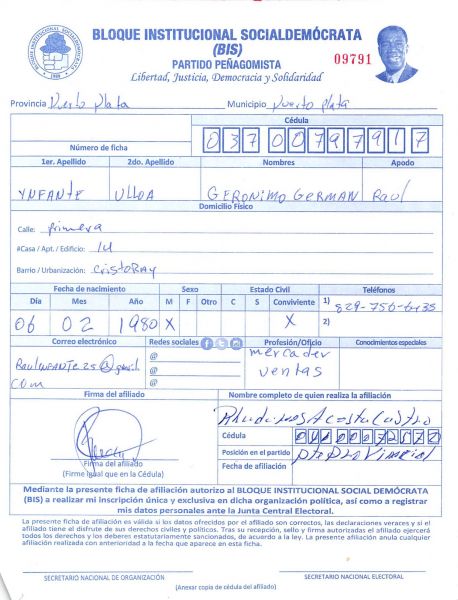 BLOQUE INSTITUCIONAL SOCIALDEMÓCRATA
(BIS)
PARTIDO PEÑAGOMISTA
09791
Libertad, Justicia, Democracia y Solidaridad
Provincia Puerto Plata Municipio Puerto Plata
Cédula
Número de ficha 03700797917
1er. Apellido 2do. Apellido Nombres Apodo
YNFANTE ULLOA GERONIMO GERMAN Raul
Domicilio Físico
Calle: primera
#Casa / Apt. / Edificio: 14
Barrio / Urbanización: CristoRAy
Fecha de nacimiento Sexo Estado Civil Teléfonos
Día Mes Año M F Otro C S Conviviente 1) 829-756-6435
06 02 1980 X X 2)
Correo electrónico Redes sociales Profesión/Oficio Conocimientos especiales
RaulinFANTE25@gmail.com
@
@
@
mercader
ventas
Firma del afiliado Nombre completo de quien realiza la afiliación
Acosta Castro
Cédula
Posición en el partido
Fecha de afiliación
Firma del afiliado
(Firme igual que en la Cédula)
Mediante la presente ficha de afiliación autorizo al BLOQUE INSTITUCIONAL SOCIAL DEMÓCRATA
(BIS) a realizar mi inscripción única y exclusiva en dicha organización política, así como a registrar
mis datos personales ante la Junta Central Electoral.
La presente ficha de afiliación es válida si los datos ofrecidos por el afiliado son correctos, las declaraciones veraces y si el
afiliado tiene el disfrute de sus derechos civiles y políticos. Tras su recepción, sello y firma autorizada el afiliado ejercerá
todos los derechos y los deberes estatutariamente sancionados, de acuerdo a la ley. La presente afiliación anula cualquier
afiliación realizada con anterioridad a la fecha que aparece en esta ficha.
SECRETARIO NACIONAL DE ORGANIZACIÓN SECRETARIO NACIONAL ELECTORAL
(Anexar copia de cédula del afiliado)